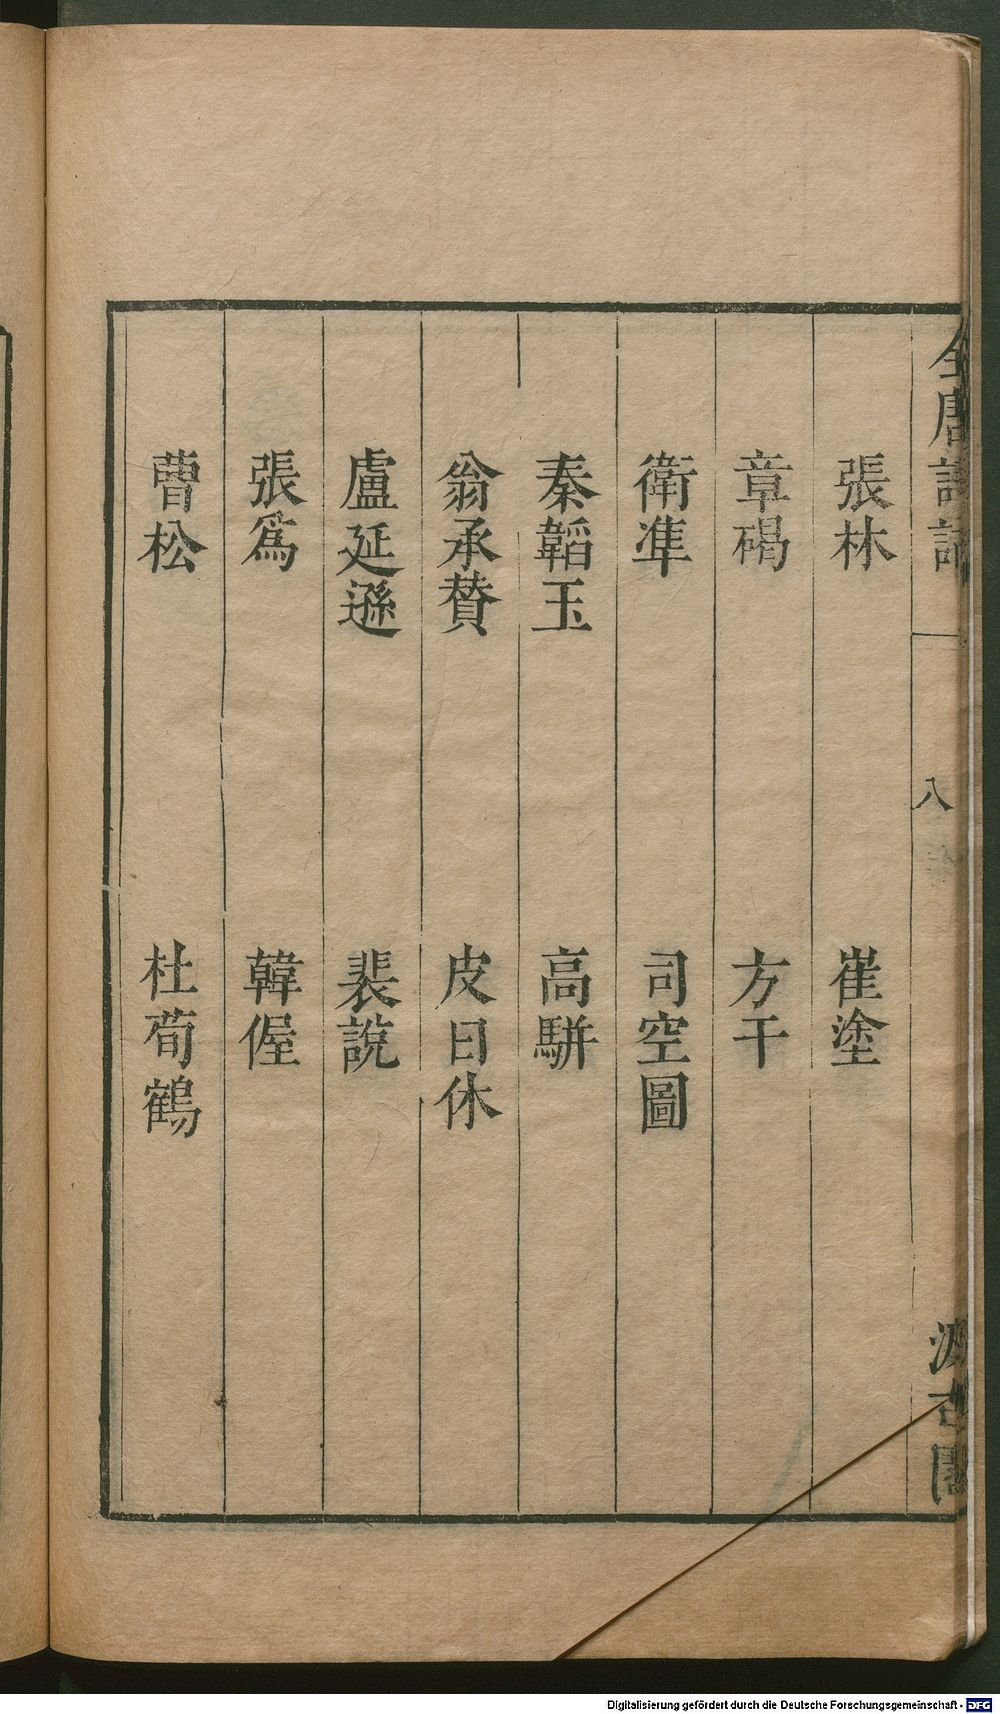 全唐詩話
八
汲古閣
張林　崔塗
章碣　方干
衛準　司空圖
秦韜玉　高駢
翁承賛　皮日休
盧延遜　裴說
張爲　韓偓
曹松　杜荀鶴
Digitalisierung gefördert durch die Deutsche Forschungsgemeinschaft - DFG